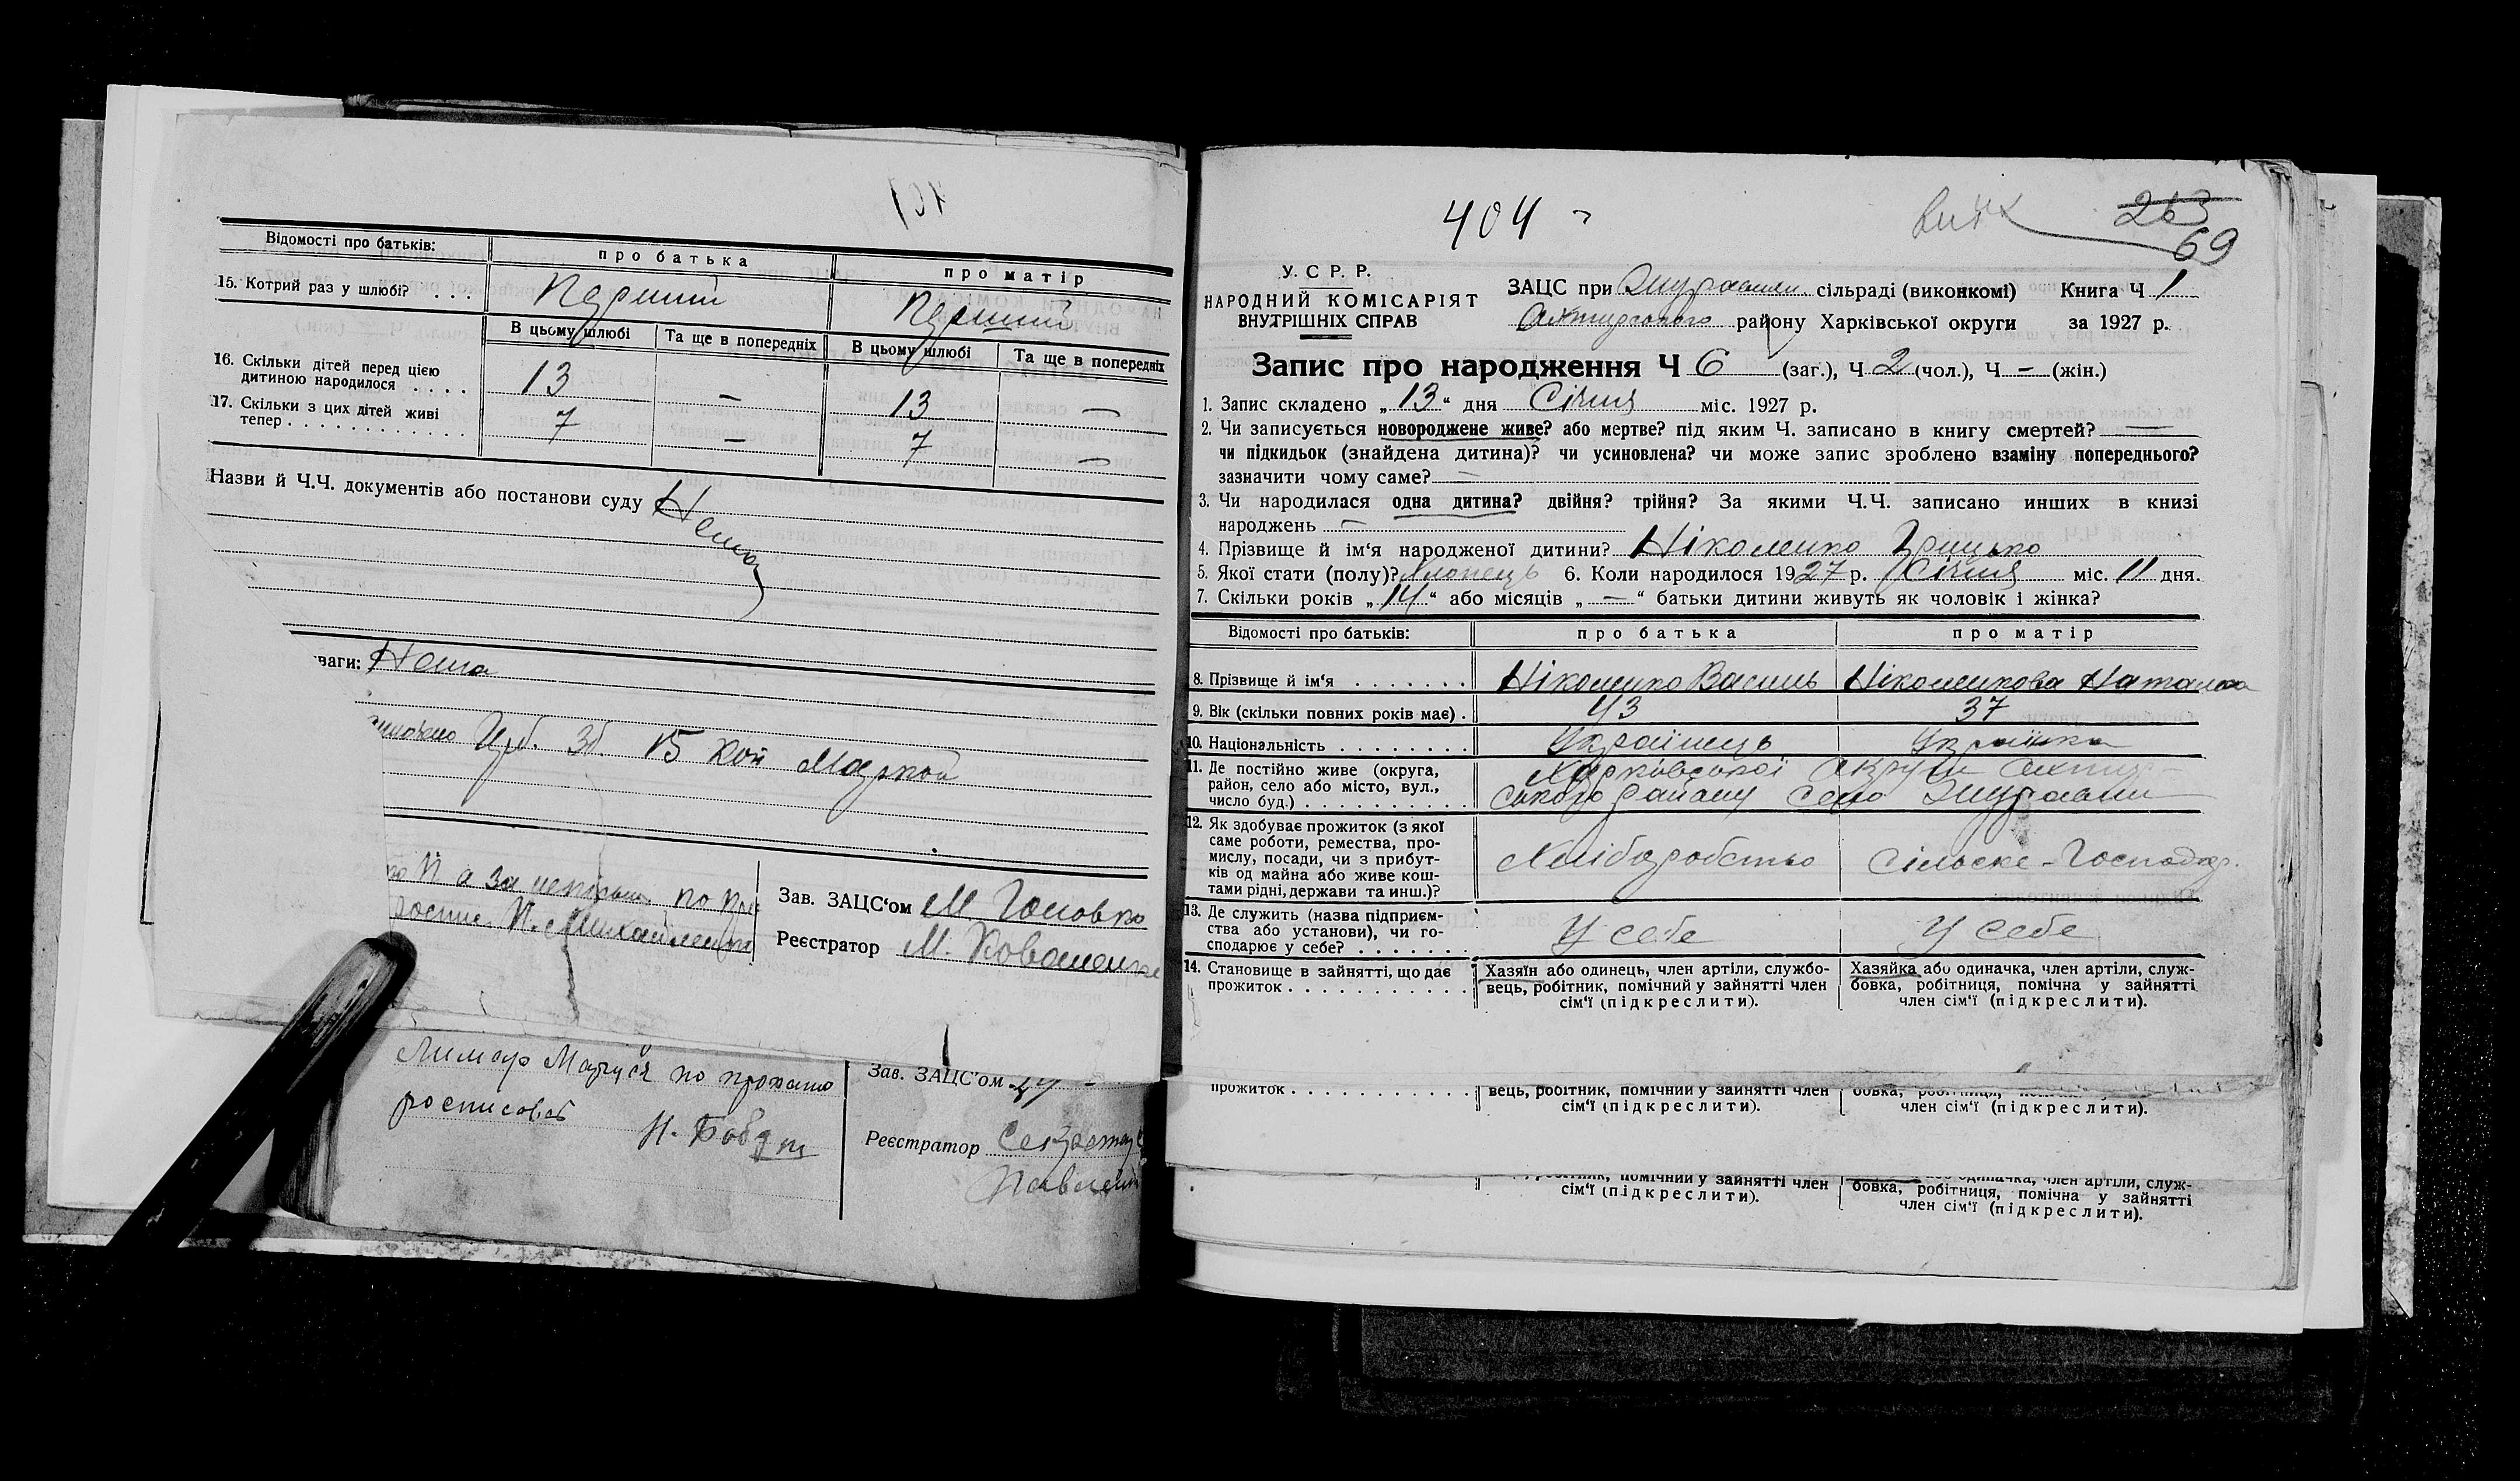 Відомості про батьків: про батька про матір
15. Котрий раз у шлюбі? . . . Перший Перший
В цьому шлюбі Та ще в попередніх В цьому шлюбі Та ще в попередніх
16. Скільки дітей перед цією
дитиною народилося . . . . 13 — 13 —
17. Скільки з цих дітей живі
тепер . . . . . . . . . . . . 7 — 7 —
Назви й Ч.Ч. документів або постанови суду Нема
ваги: Нема
Зб. 15 коп Маркой
за по
Зав. ЗАЦС‘ом М. Головко
Реєстратор М. Коваленко
по прохано
росписовсь
Зав. ЗАЦС‘ом
Реєстратор
404
263
69
У. С. Р. Р.
НАРОДНИЙ КОМІСАРІЯТ
ВНУТРІШНІХ СПРАВ
ЗАЦС при сільраді (виконкомі) Книга Ч 1
району Харківської округи за 1927 р.
Запис про народження Ч 6 (заг.), Ч 2 (чол.), Ч – (жін.)
1. Запис складено „13“ дня Січня міс. 1927 р.
2. Чи записується новороджене живе? або мертве? під яким Ч. записано в книгу смертей? —
чи підкидьок (знайдена дитина)? чи усиновлена? чи може запис зроблено взаміну попереднього?
зазначити чому саме? —
3. Чи народилася одна дитина? двійня? трійня? За якими Ч.Ч. записано инших в книзі
народжень —
4. Прізвище й ім‘я народженої дитини? Ніколенко Грицько
5. Якої стати (полу)? Хлопець 6. Коли народилося 1927 р. Січня міс. 11 дня.
7. Скільки років „14“ або місяців „—“ батьки дитини живуть як чоловік і жінка?
Відомості про батьків: про батька про матір
8. Прізвище й ім‘я . . . . . . . Ніколенко Василь Ніколенкова Наталка
9. Вік (скільки повних років має) . 43 37
10. Національність . . . . . . . . Українець Українка
11. Де постійно живе (округа,
район, село або місто, вул.,
число буд.) . . . . . . . . . . Харківської Округи
ського району Село
12. Як здобуває прожиток (з якої
саме роботи, ремества, про-
мислу, посади, чи з прибут-
ків од майна або живе кош-
тами рідні, держави та инш.)? Хліборобство Сільске-Господар.
13. Де служить (назва підприєм-
ства або установи), чи го-
сподарює у себе? . . . . . . . У себе У себе
14. Становище в зайнятті, що дає
прожиток . . . . . . . . . . . .
Хазяїн або одинець, член артіли, службо-
вець, робітник, помічний у зайнятті член
сім‘ї (підкреслити).
Хазяйка або одиначка, член артіли, служ-
бовка, робітниця, помічна у зайнятті
член сім‘ї (підкреслити).
прожиток . . . . . . . . . . . . вець, робітник, помічний у зайнятті член
сім‘ї (підкреслити).
бовка,
член сім‘ї (підкреслити).
помічний у зайнятті член
сім‘ї (підкреслити).
член артіли, служ-
бовка, робітниця, помічна у зайнятті
член сім‘ї (підкреслити).